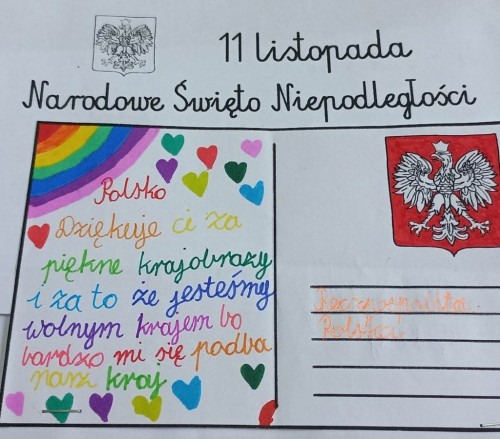 11 listopada
Narodowe Święto Niepodległości
Polsko
Dziękuje ci za
piękne krajobrazy
i za to że jesteśmy
wolnym krajem bo
bardzo mi się podba
nasz kraj
Polska